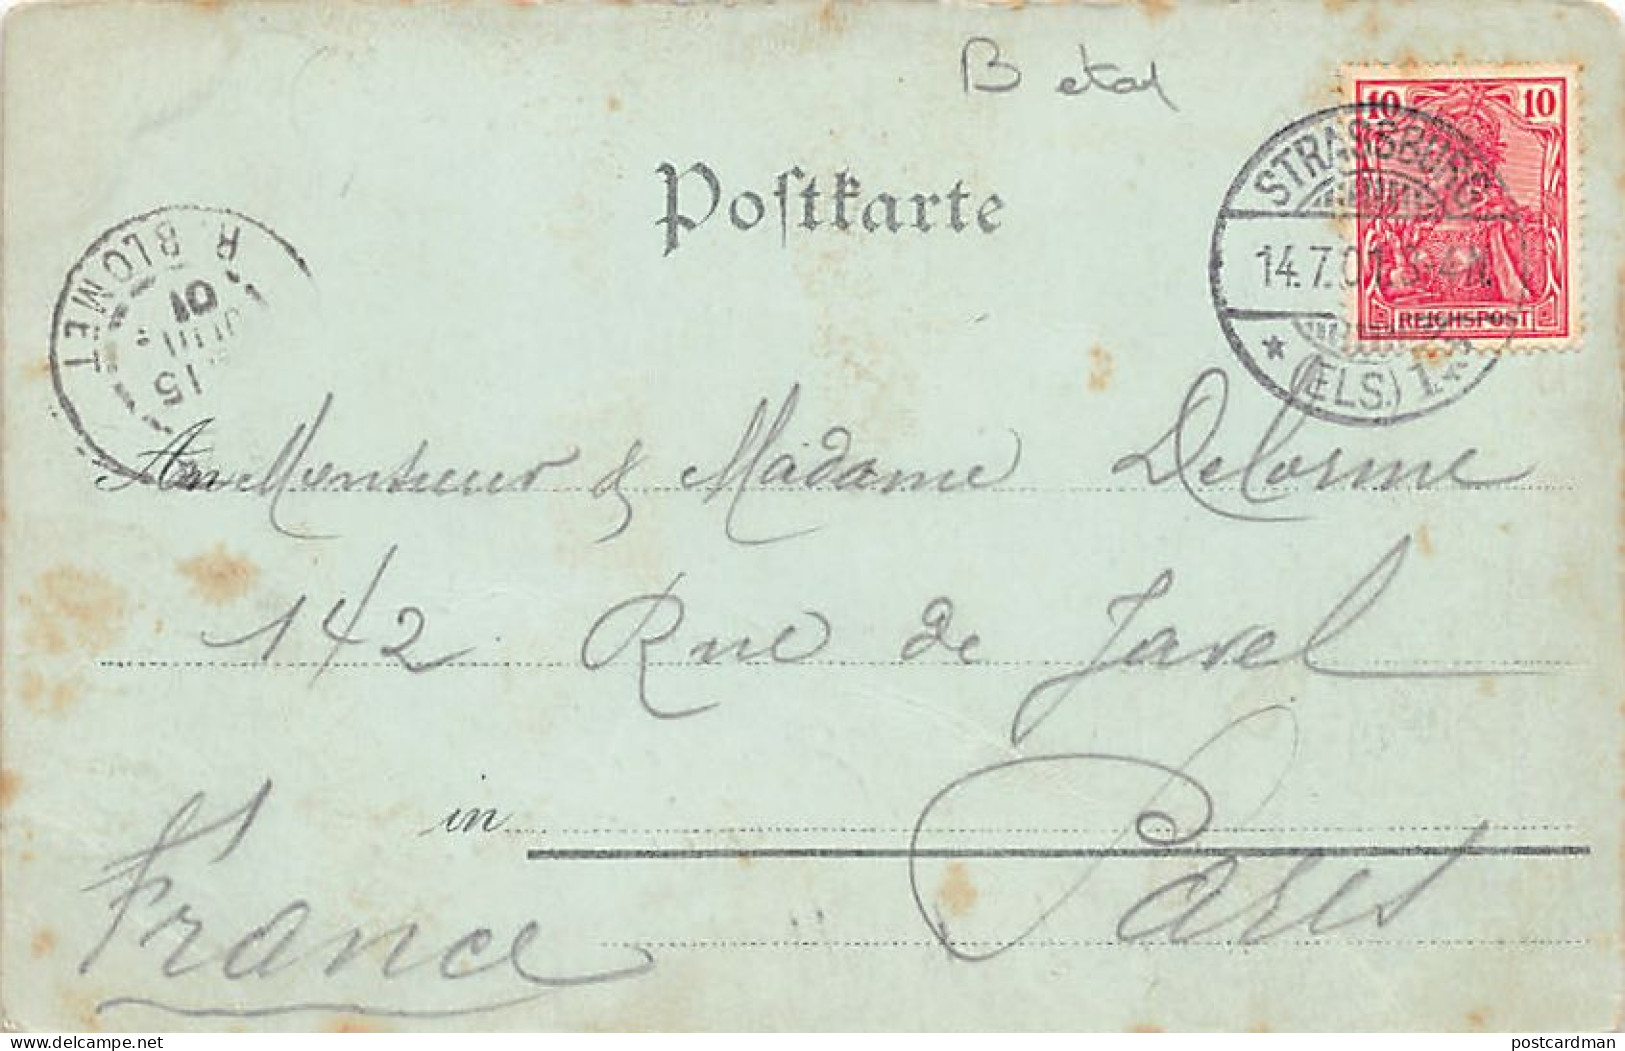 B etat
10 10
STRASSBURG
14.7.01.3-4N.
REICHSPOST
* (ELS.) 1.
Postkarte
R. BLOMET
15
JUIL
01
An Monsieur & Madame Delorme
142 Rue de Javel
in Paris
France
postcardman